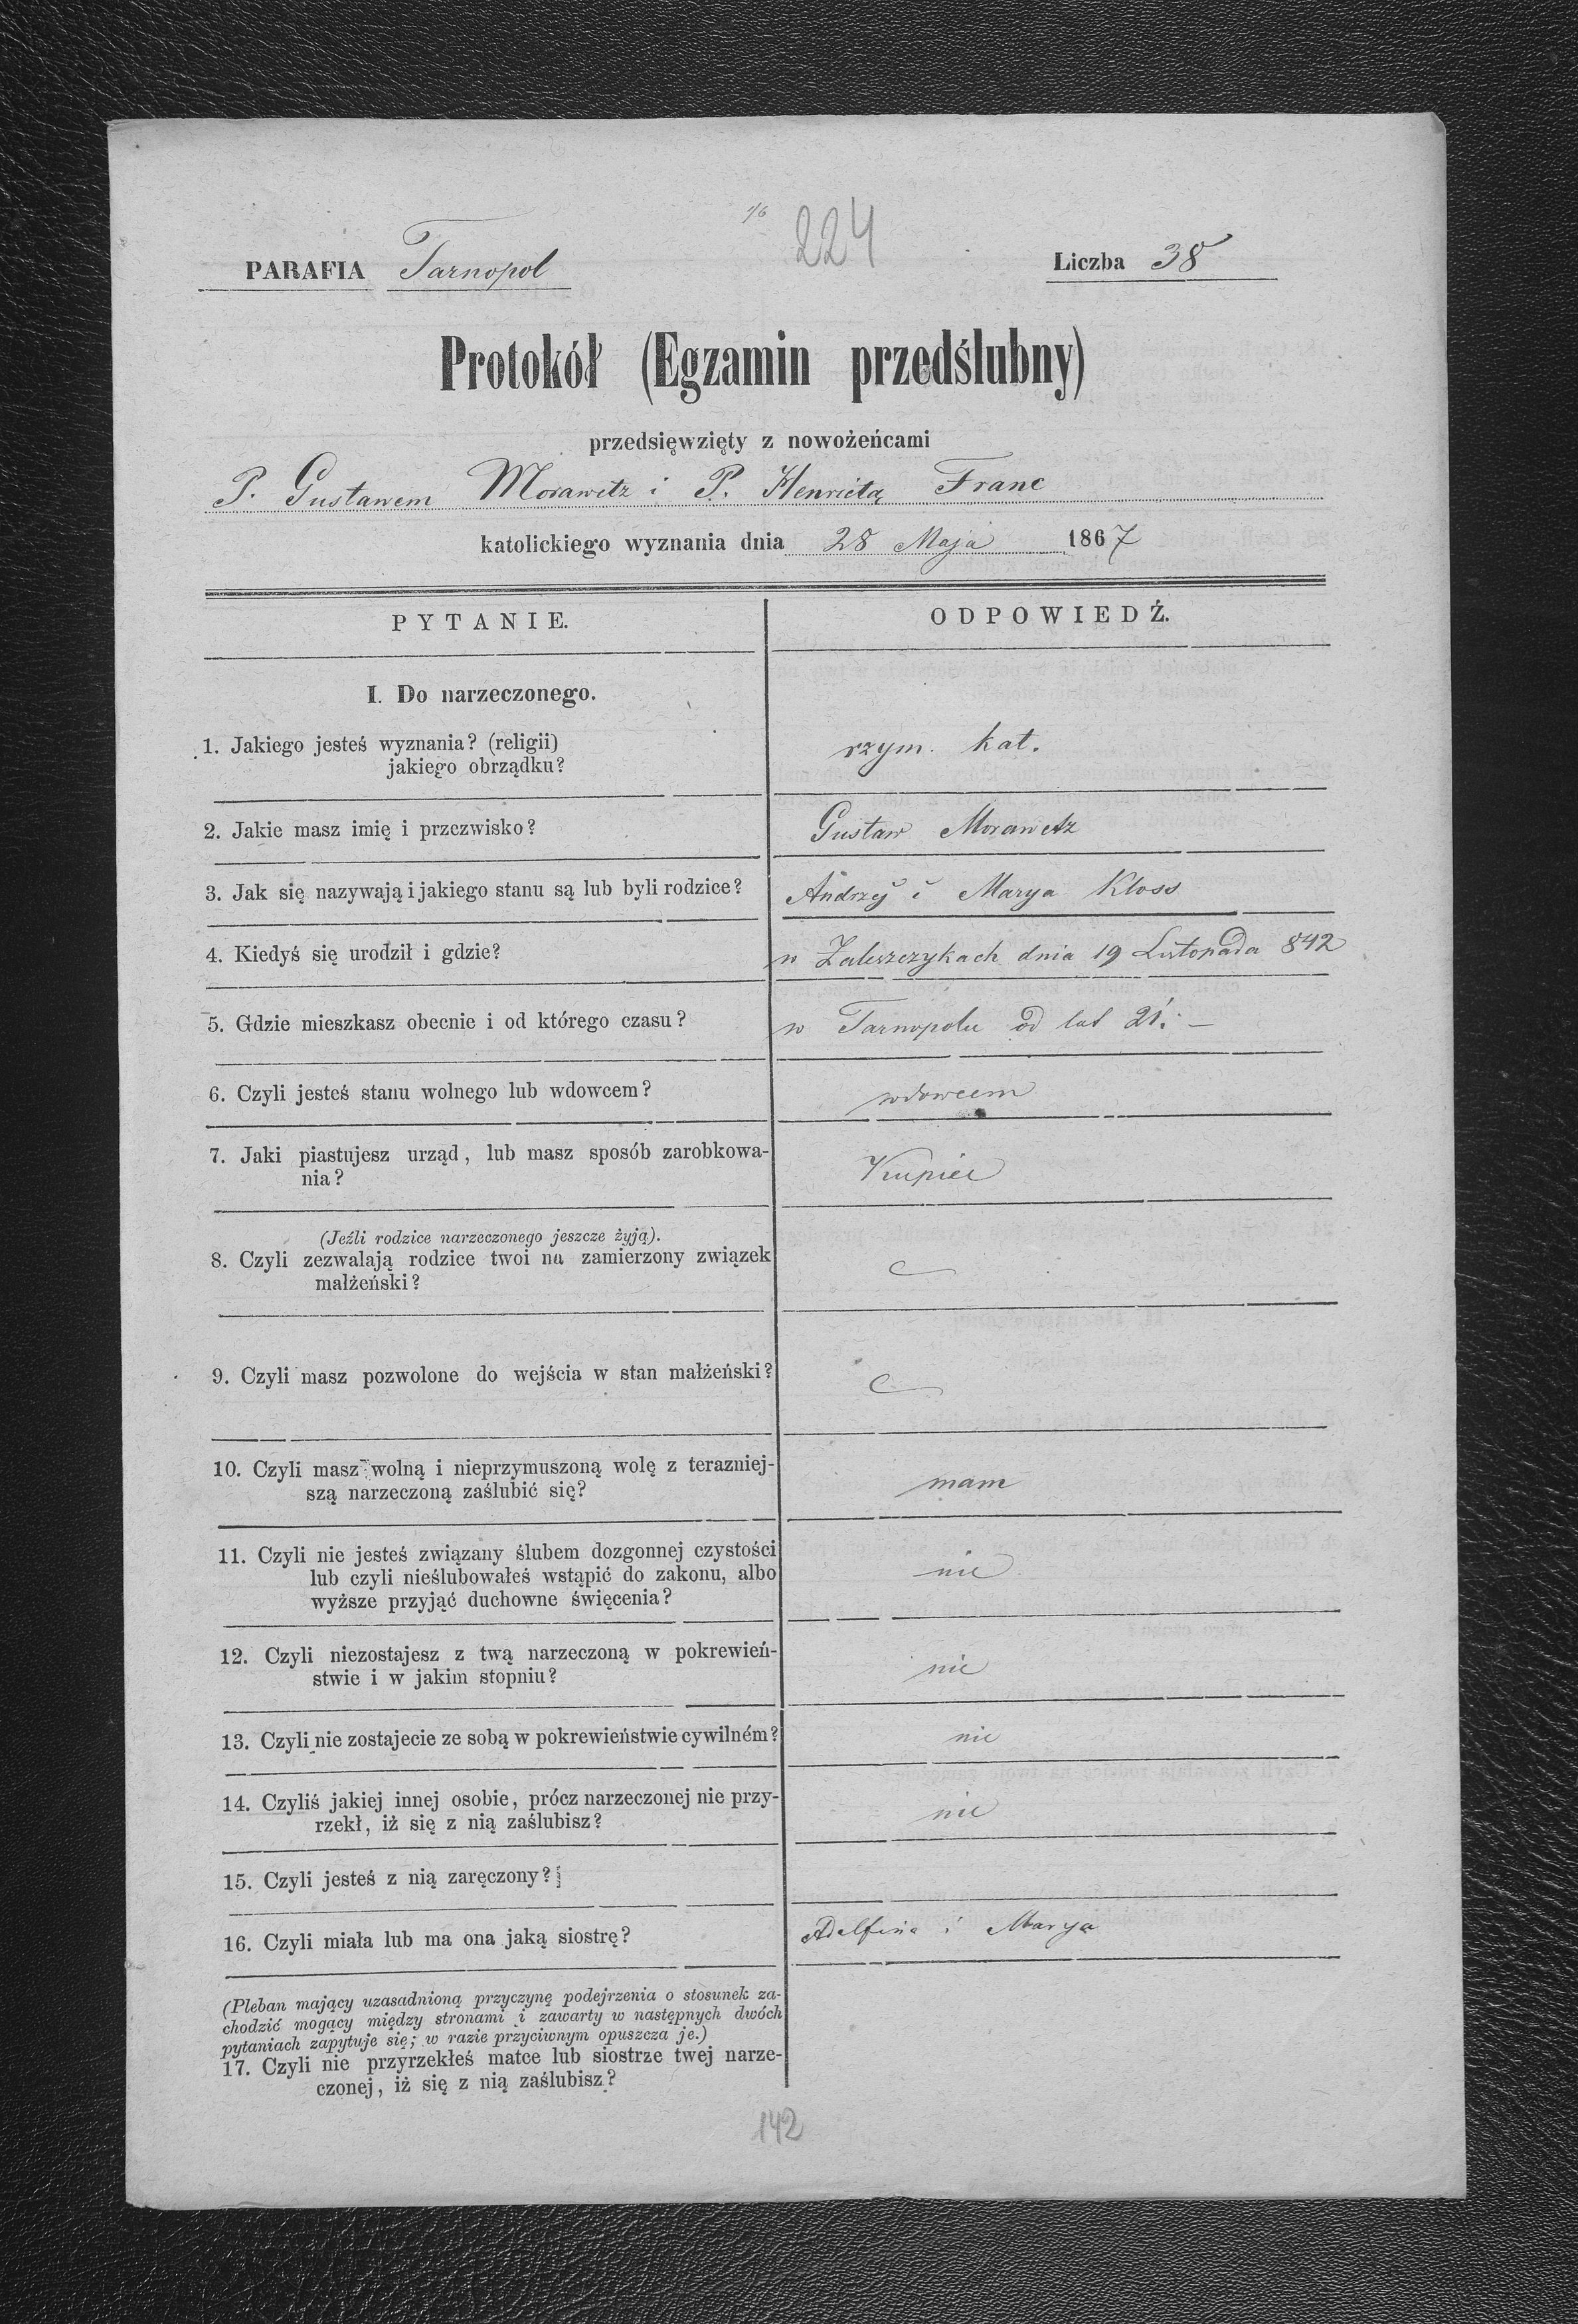 1/6
224
PARAFIA Tarnopol
Liczba 38
Protokół (Egzamin przedślubny)
przedsięwzięty z nowożeńcami
P. Gustawem Morawetz i P. Henrietą Franc
katolickiego wyznania dnia 28 Maja 1867
PYTANIE.
ODPOWIEDŹ.
I. Do narzeczonego.
1. Jakiego jesteś wyznania? (religii)
jakiego obrządku?
rzym. kat.
2. Jakie masz imię i przezwisko?
Gustaw Morawetz
3. Jak się nazywają i jakiego stanu są lub byli rodzice?
Andrzej i Marya Kloss
4. Kiedyś się urodził i gdzie?
w Zaleszczykach dnia 19 Listopada 842
5. Gdzie mieszkasz obecnie i od którego czasu?
w Tarnopolu od lat 21. –
6. Czyli jesteś stanu wolnego lub wdowcem?
wdowcem
7. Jaki piastujesz urząd, lub masz sposób zarobkowa-
nia?
Kupiec
(Jeźli rodzice narzeczonego jeszcze żyją).
8. Czyli zezwalają rodzice twoi na zamierzony związek
małżeński?
9. Czyli masz pozwolone do wejścia w stan małżeński?
10. Czyli masz wolną i nieprzymuszoną wolę z terazniej-
szą narzeczoną zaślubić się?
mam
11. Czyli nie jesteś związany ślubem dozgonnej czystości
lub czyli nieślubowałeś wstąpić do zakonu, albo
wyższe przyjąć duchowne święcenia?
nie
12. Czyli niezostajesz z twą narzeczoną w pokrewień-
stwie i w jakim stopniu?
nie
13. Czyli nie zostajecie ze sobą w pokrewieństwie cywilném?
nie
14. Czyliś jakiej innej osobie, prócz narzeczonej nie przy-
rzekł, iż się z nią zaślubisz?
nie
15. Czyli jesteś z nią zaręczony?
16. Czyli miała lub ma ona jaką siostrę?
Adelfina i Marya
(Pleban mający uzasadnioną przyczynę podejrzenia o stosunek za-
chodzić mogący między stronami i zawarty w następnych dwóch
pytaniach zapytuje się; w razie przyciwnym opuszcza je.)
17. Czyli nie przyrzekłeś matce lub siostrze twej narze-
czonej, iż się z nią zaślubisz?
142